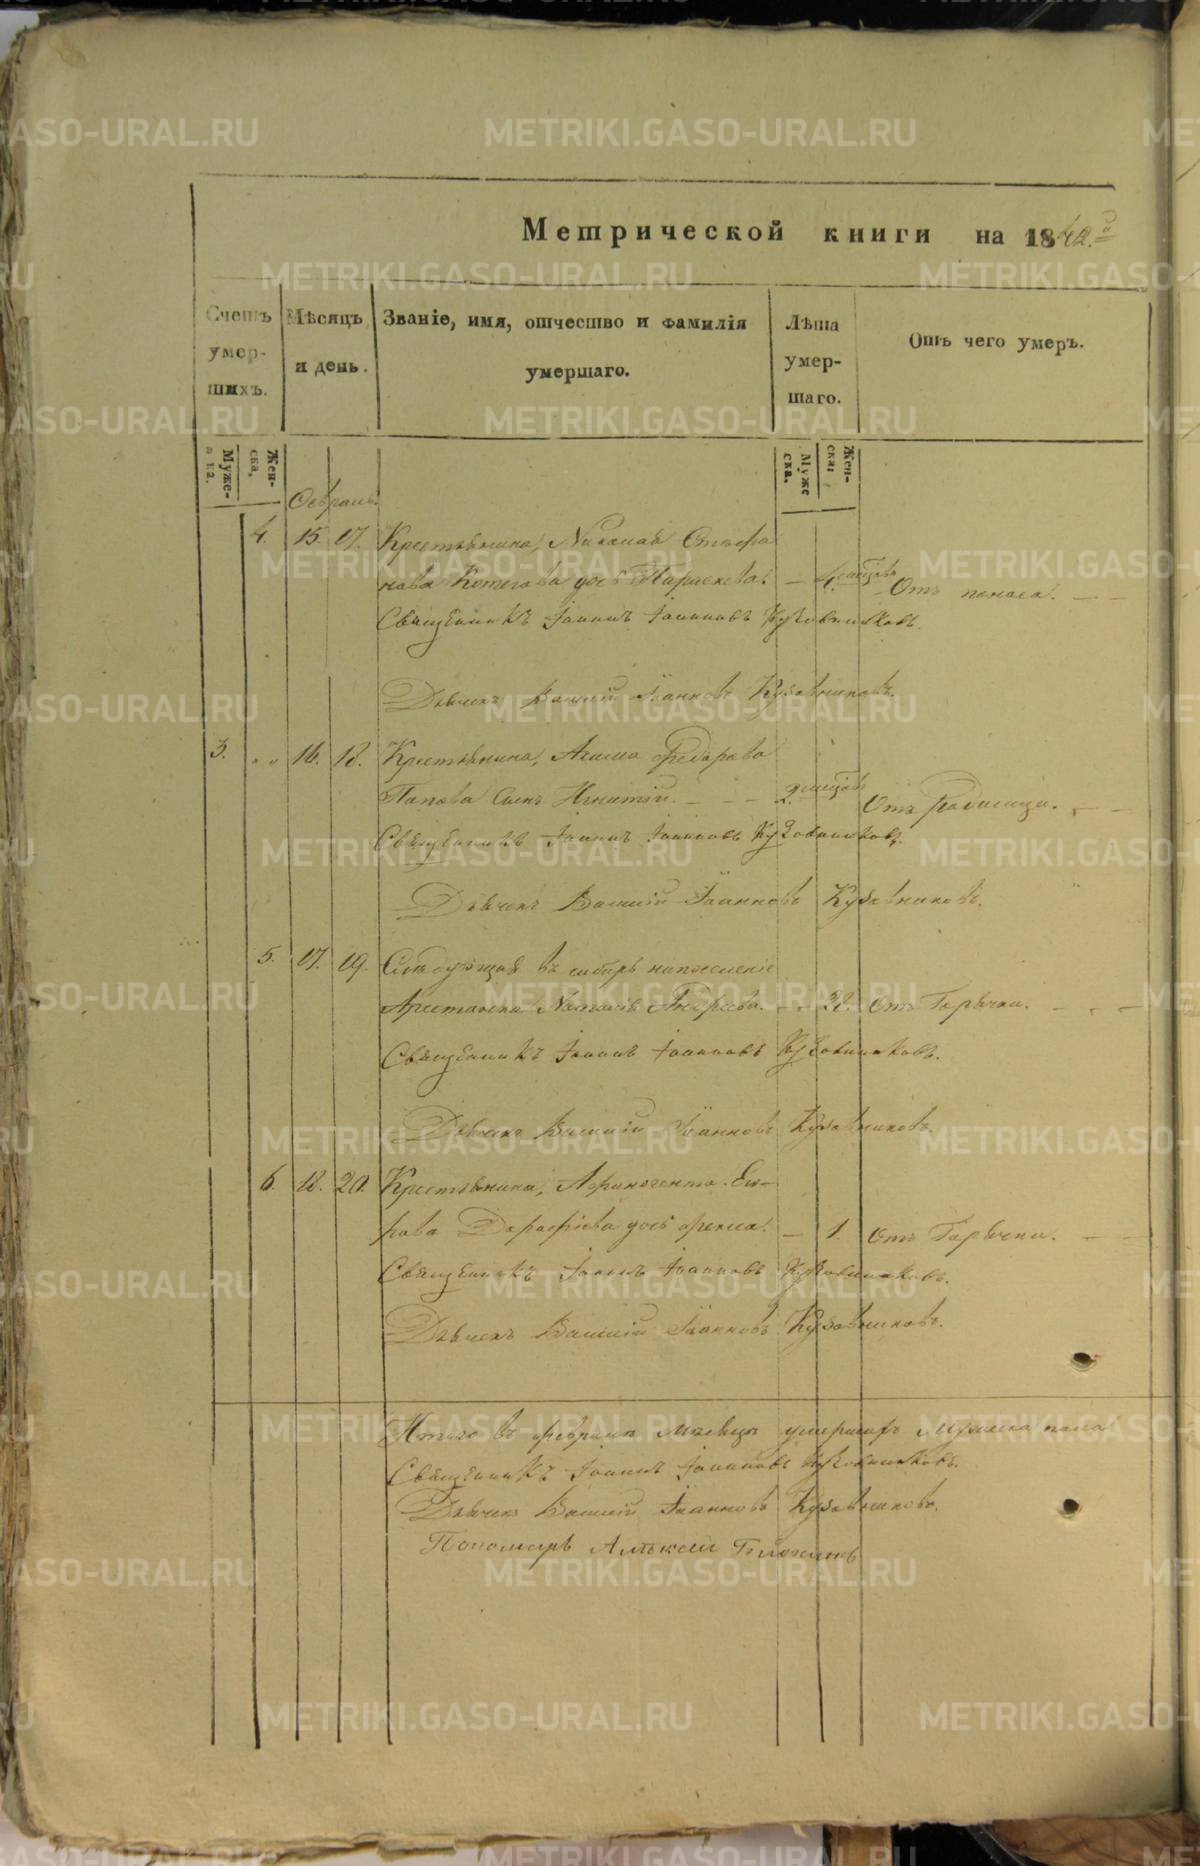 Метрической книги на 1842.
Счетъ умер- шихъ.
Мѣсяцъ и день.
Званіе, имя, отчество и фамилія умершаго.
Лѣта умер- шаго.
Отъ чего умеръ.
Муже- ска.
Жен- ска,
Муже ска.
Жен- ска
Февраль.
4. 15. 17. Крестьянина, Николая Стефа
нова Котегова дочь — 4. месяцовъ Отъ поноса.
Священникъ Іоаннъ Іоанновъ Кузовниковъ.
Дьячекъ Василій Іоанновъ Кузовниковъ.
3. „ „ 16. 18. Крестьянина, Акима Федорова
Попова сынъ Игнатій. 2. месяцовъ Отъ Родимца.
Священникъ Іоаннъ Іоанновъ Кузовниковъ.
Дьячекъ Василій Іоанновъ Кузовниковъ.
5. 17. 19. Следующая въ сибирь на поселеніе
Арестантка Наталья Андреева. 28. Отъ Горячки.
Священникъ Іоаннъ Іоанновъ Кузовниковъ.
Дьячекъ Василій Іоанновъ Кузовниковъ.
6. 18. 20. Крестьянина, Афиногента
Дорофеева дочь Фекла. — 1. Отъ Горячки.
Священникъ Іоаннъ Іоанновъ Кузовниковъ.
Дьячекъ Василій Іоанновъ Кузовниковъ.
Итого въ феврале месяце умершихъ мужеска пола
Священникъ Іоаннъ Іоанновъ Кузовниковъ.
Дьячекъ Василій Іоанновъ Кузовниковъ.
Пономарь Алексей
METRIKI.GASO-URAL.RU